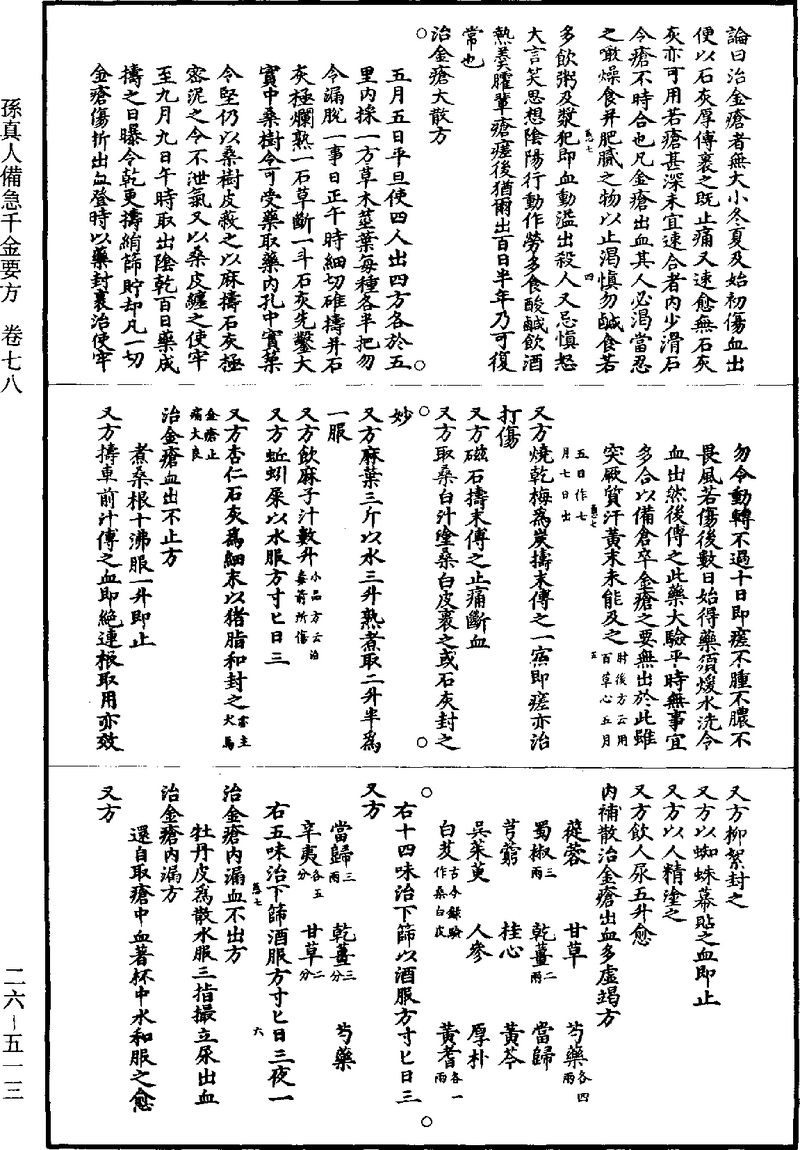 論曰治金瘡者無大小冬夏及始初傷血出
便以石灰厚傅裹之既止痛又速愈無石灰
灰亦可用若瘡甚深未宜速合者內少滑石
令瘡不時合也凡金瘡出血其人必渴當忍
之噉燥食并肥膩之物以止渴慎勿鹹食若
多飲粥及漿犯即血動溢出殺人又忌慎怒
大言笑思想陰陽行動作勞多食酸鹹飲酒
熱羹臛輩瘡瘥後猶爾出百日半年乃可復
常也
卷七
四
治金瘡大散方
五月五日平旦使四人出四方各於五
里內採一方草木莖葉每種各半把勿
令漏脫一事日正午時細切碓擣并石
灰極爛熟一石草斷一斗石灰先鑿大
實中桑樹令可受藥取藥內孔中實築
令堅仍以桑樹皮蔽之以麻擣石灰極
密泥之令不泄氣又以桑皮纏之使牢
至九月九日午時取出陰乾百日藥成
擣之日曝令乾更擣絹篩貯却凡一切
金瘡傷折出血登時以藥封裹治使牢
勿令動轉不過十日即瘥不腫不膿不
畏風若傷後數日始得藥須煖水洗令
血出然後傅之此藥大驗平時無事宜
多合以備倉卒金瘡之要無出於此雖
突厥質汗黃末未能及之 肘後方云用百草心五月
五日作七月七日出
卷七
五
又方燒乾梅為炭擣末傅之一宿即瘥亦治
打傷
又方磁石擣末傅之止痛斷血
又方取桑白汁塗桑白皮裹之或石灰封之
妙
又方麻葉三斤以水三升熟煮取二升半為
一服
又方飲麻子汁數升 小品方云治毒箭所傷
又方蚯蚓屎以水服方寸匕日三
又方杏仁石灰為細末以猪脂和封之 亦主犬馬
金瘡止痛大良
治金瘡血出不止方
煮桑根十沸服一升即止
又方擣車前汁傅之血即絕連根取用亦效
又方柳絮封之
又方以蜘蛛幕貼之血即止
又方以人精塗之
又方飲人尿五升愈
內補散治金瘡出血多虛竭方
蓯蓉 甘草 芍藥 各四兩
蜀椒 三兩 乾薑 二兩 當歸
芎藭 桂心 黃芩
吳茱萸 人參 厚朴
白芨 古今錄驗作桑白皮 黃耆 各一兩
右十四味治下篩以酒服方寸匕日三
又方
當歸 三兩 乾薑 三分 芍藥
辛夷 各五分 甘草 二分
右五味治下篩酒服方寸匕日三夜一
卷七
六
治金瘡內漏血不出方
牡丹皮為散水服三指撮立尿出血
治金瘡內漏方
還自取瘡中血著杯中水和服之愈
又方
孫真人備急千金要方 卷七八
二六—五一三